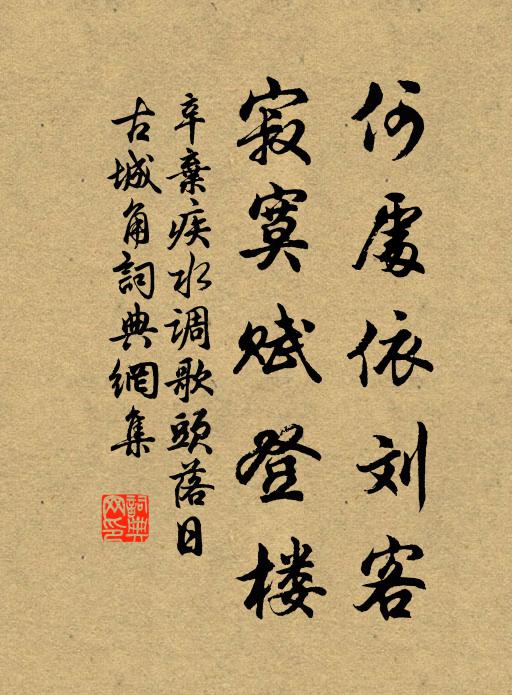 何處依刘客
寂寞赋登楼
辛棄疾水调歌頭落日
古城角詞典網集
詞典网印